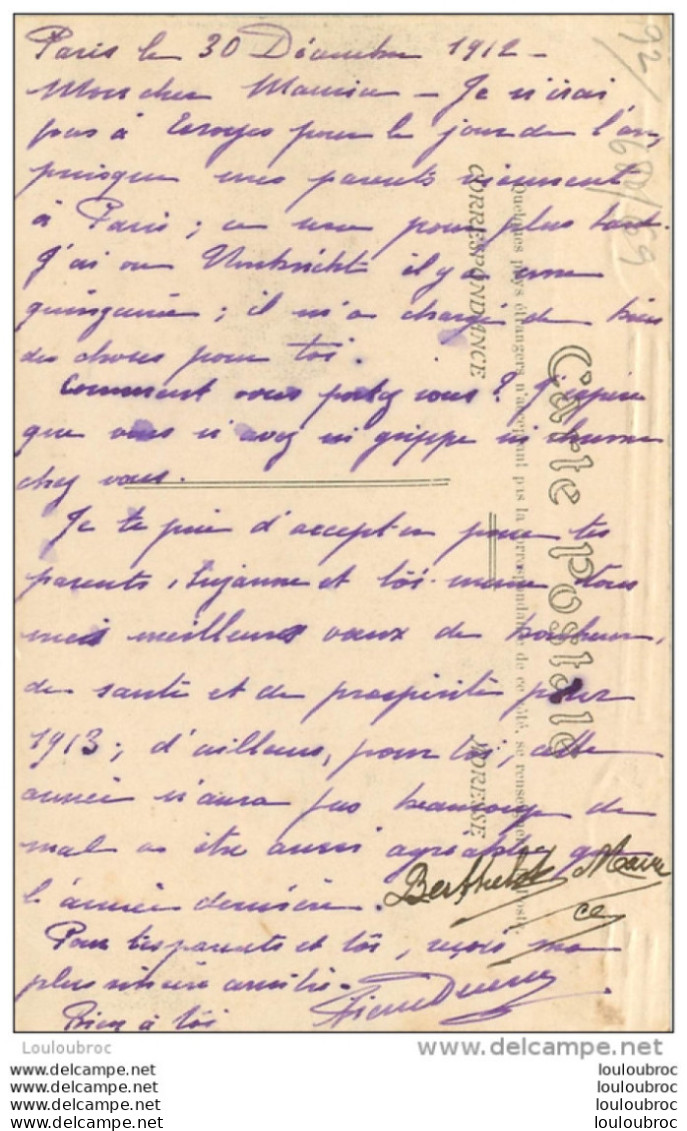 Paris le 30 Décembre 1912 -
Mon cher Maurice - Je n'irai
pas à Essoyes pour le jour de l'an,
puisque mes parents viennent
à Paris ; ce sera pour plus tard.
J'ai vu il y a une
quinzaine ; il m'a chargé de bien
des choses pour toi.
Comment vous portez vous ? J'espère
que vous n'avez ni grippe ni rhume
chez vous.
Je te prie d'accepter pour tes
parents, Suzanne et toi-même tous
mes meilleurs vœux de bonheur,
de santé et de prospérité pour
1913 ; d'ailleurs, pour toi, cette
année n'aura pas beaucoup de
mal à être aussi agréable que
l'année dernière.
Pour tes parents et toi, reçois ma
plus sincère amitié.
Bien à toi
Pierre
Berthelot Mauri
ce
92/
680/69
Carte Postale
Quelques pays étrangers n'acceptant pas la correspondance de ce côté, se renseigner à la Poste
CORRESPONDANCE
ADRESSE
Louloubroc
delcampe.net
louloubroc
www.delcampe.net louloubroc
www.delcampe.net louloubroc
www.delcampe.net louloubroc
www.delcampe.net louloubroc